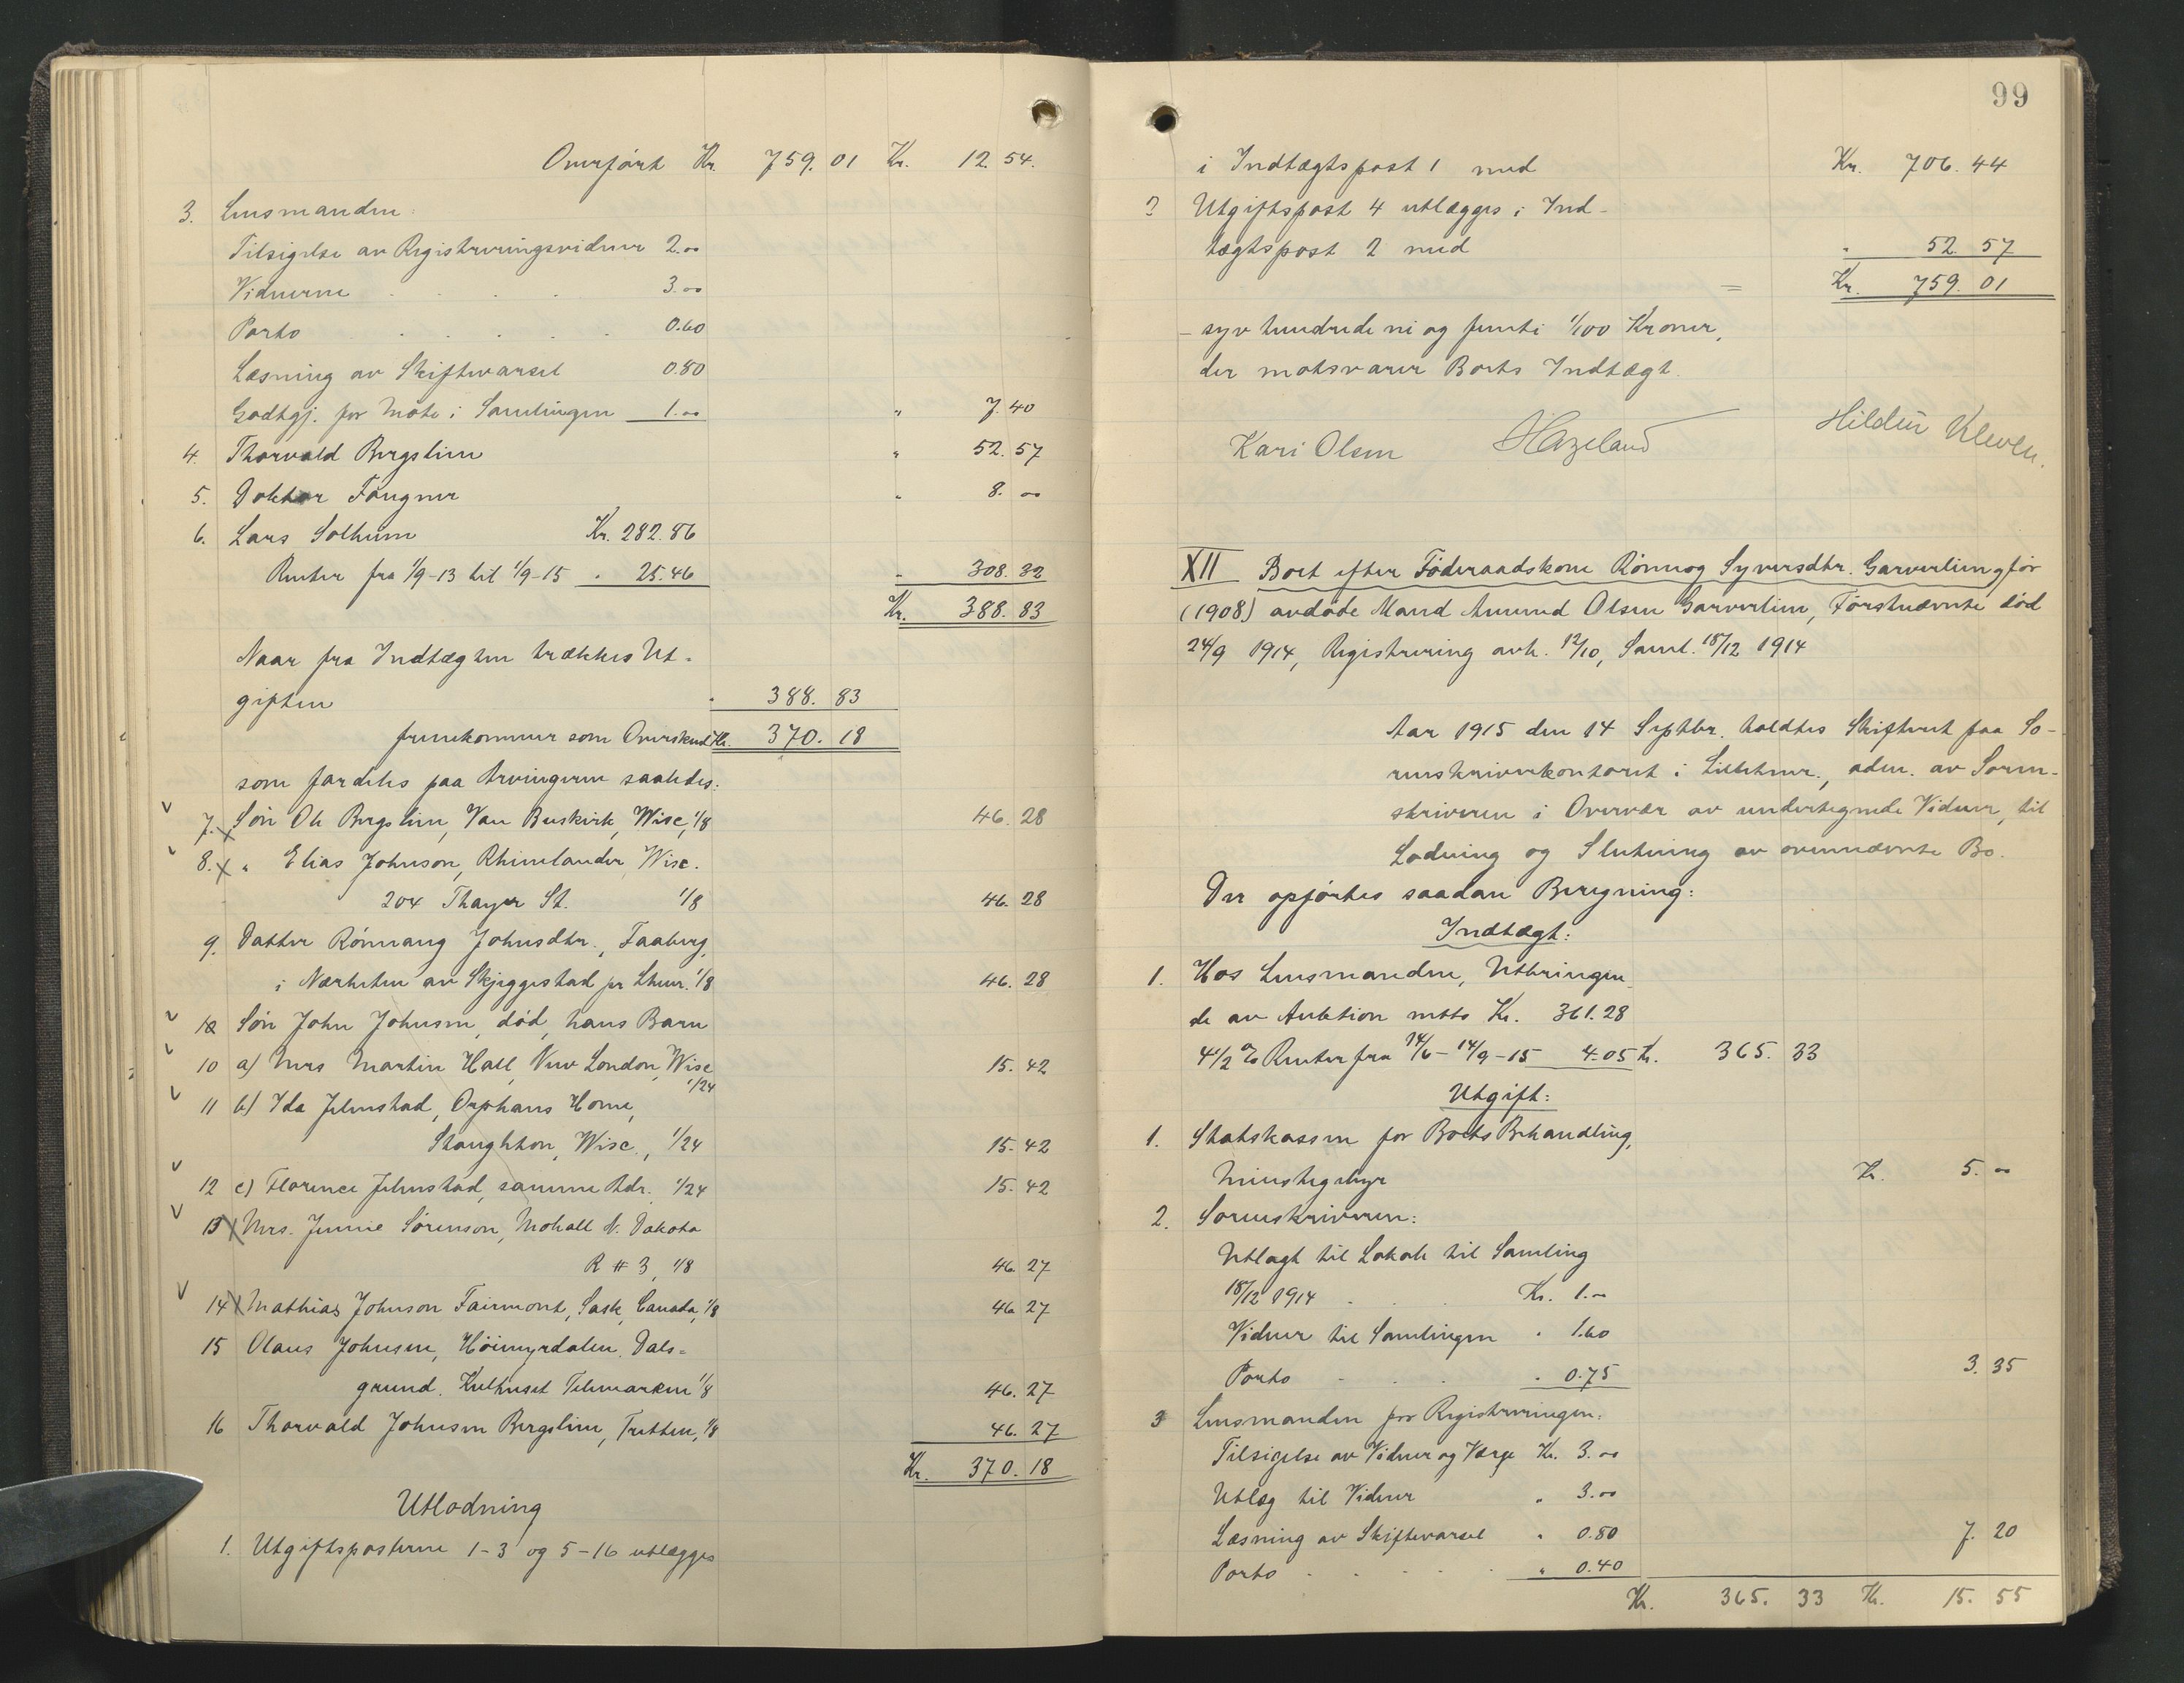 Overført Kr. 759.01 Kr. 12.54.
3. Lensmanden:
Tilsigelse av Registreringsvidner 2.00
Vidnerne . . . . 3.00
Porto . . . . . 0.60
Læsning av Skiftevarsel 0.80
Godtgj. for Møte i Samlingen 1.00 " 7.40
4. Thorvald Bergslien " 52.57
5. Doktor Fougner " 8.00
6. Lars Solhiem Kr. 282.86
Renter fra 1/9-13 til 1/9-15 " 25.46 " 308.32
Kr. 388.83
Naar fra Indtægten trækkes Ut-
giften " 388.83
fremkommer som Overskud Kr. 370.18
som fordeles paa Arvingerne saaledes:
7. Søn Ole Bergslien, Van Buskirk, Wisc, 1/8 46.28
8. " Elias Johnson, Rhinelander, Wisc.
204 Thayer St. 1/8 46.28
9. Datter Rønnaug Johnsdtr., Faaberg,
i Nærheten av Skjeggestad pr Lhmr. 1/8 46.28
10 Søn John Johnsen, død, hans Barn
10 a) Mrs Martin Hall, New London, Wisc 15.42
1/24
11 b) Ida Jelmstad, Orphans Home,
Stoughton, Wisc., 1/24 15.42
12 c) Florence Jelmstad, samme Adr. 1/24 15.42
13 Mrs. Jennie Sørenson, Mohall N. Dakota
R # 3, 1/8 46.27
14 Mathias Johnson Fairmont, Sask, Canada, 1/8 46.27
15 Olaus Johnsen, Høimyrdalen, Dals-
grund. Kulhuset Telemarken 1/8 46.27
16 Thorvald Johnsen Bergslien, Tretten, 1/8 46.27
Kr. 370.18
Utlodning
1. Utgiftsposterne 1-3 og 5-16 utlægges
99
i Indtægtspost 1 med Kr. 706.44
2 Utgiftspost 4 utlægges i Ind-
tægtspost 2 med " 52.57
= Kr. 759.01
- syv hundrede ni og femti 1/100 Kroner,
der motsvarer Boets Indtægt.
Kari Olsen Hazeland Hildur Kleven.
XII Boet efter Føderaadskone Rønnog Syversdtr. Garverlien g for
(1908) avdøde Mand Amund Olsen Garverlien, Førstnævnte død
24/9 1914, Registrering avh. 12/10, Saml. 18/12 1914
Aar 1915 den 14 Septbr. holdtes Skifteret paa So-
renskriverkontoret i Lillehmr., adm. av Soren-
skriveren i Overvær av undertegnede Vidner, til
Lodning og Slutning av ovennævnte Bo.
Der opførtes saadan Beregning:
Indtægt:
1. Hos Lensmanden, Utbringen-
de av Auktion netto Kr. 361.28
4 1/2 % Renter fra 14/6 - 14/9-15 4.05 Kr. 365.33
Utgift:
1. Statskassen for Boets Behandling,
Minstegebyr Kr. 5.00
2. Sorenskriveren:
Utlagt til Lokale til Samling
18/12 1914 . . Kr. 1.00
Vidner til Samlingen " 1.60
Porto . . . " 0.75 3.35
3 Lensmanden for Registreringen:
Tilsigelse av Vidner og Værge Kr. 3.00
Utlæg til Vidner " 3.00
Læsning av Skiftevarsel " 0.80
Porto . . . . " 0.40 7.20
Kr. 365.33 Kr. 15.55